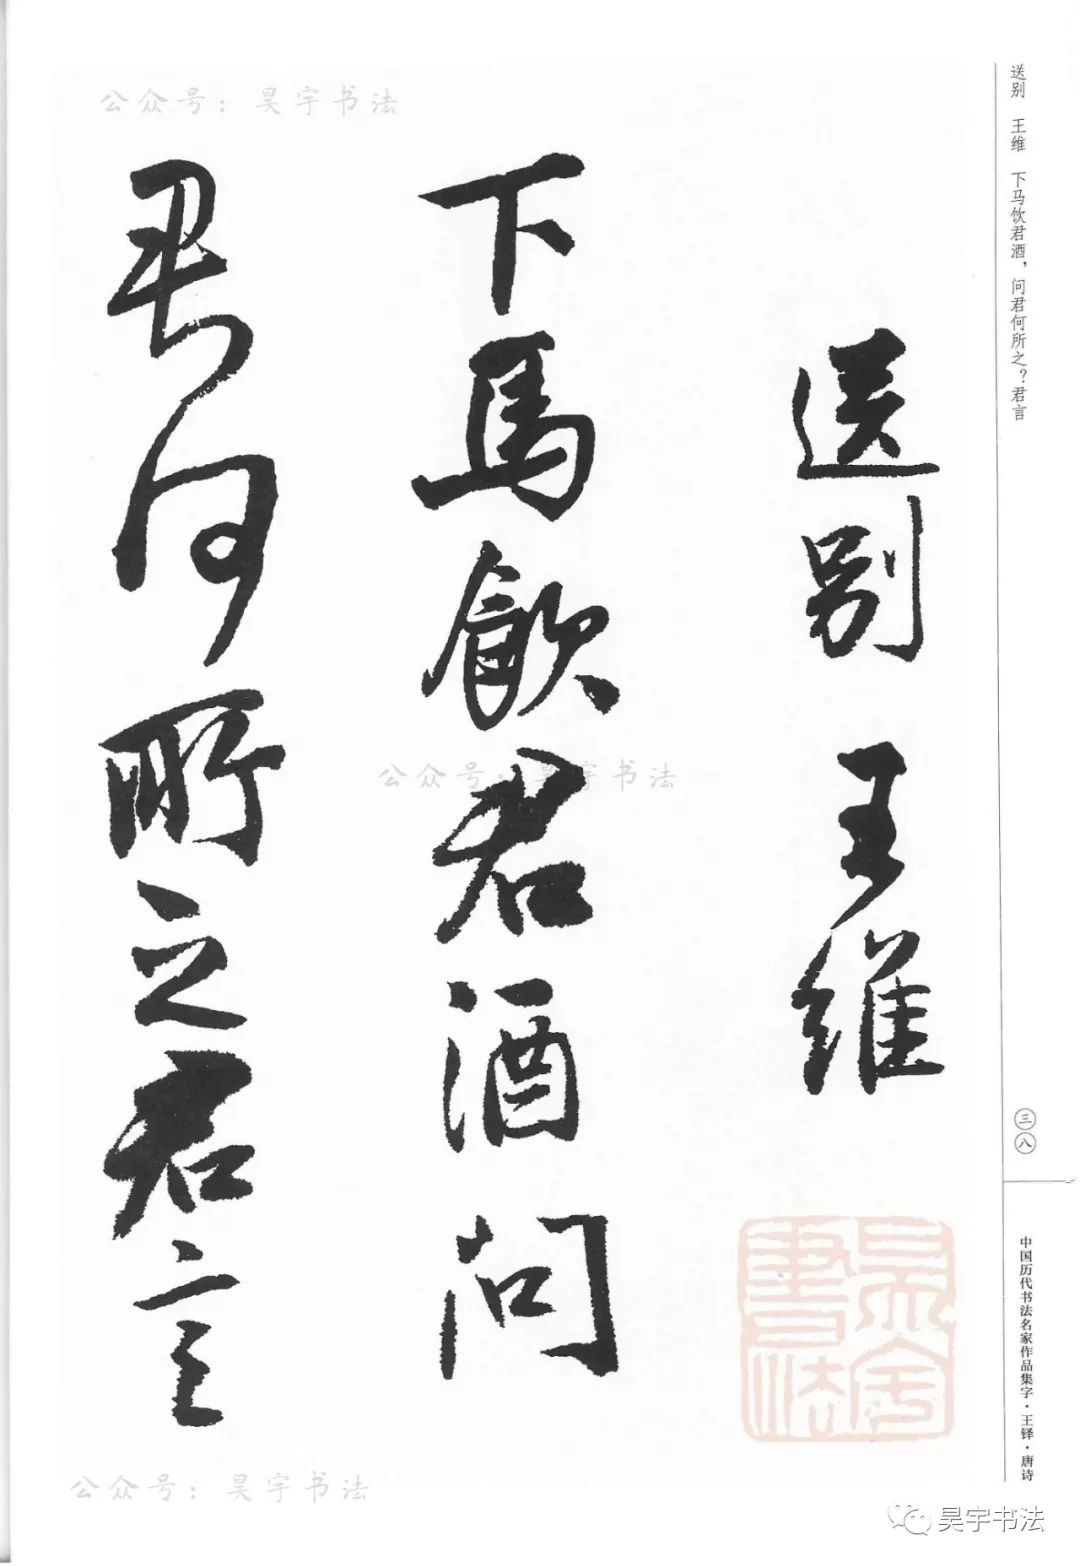 公众号：昊宇书法
送别 王维 下马饮君酒，问君何所之？君言
送别 王維
下馬飲君酒問
君何所之君言
公众号：昊宇书法
三八
中国历代书法名家作品集字·王铎·唐诗
昊宇書法
公众号：昊宇书法
昊宇书法